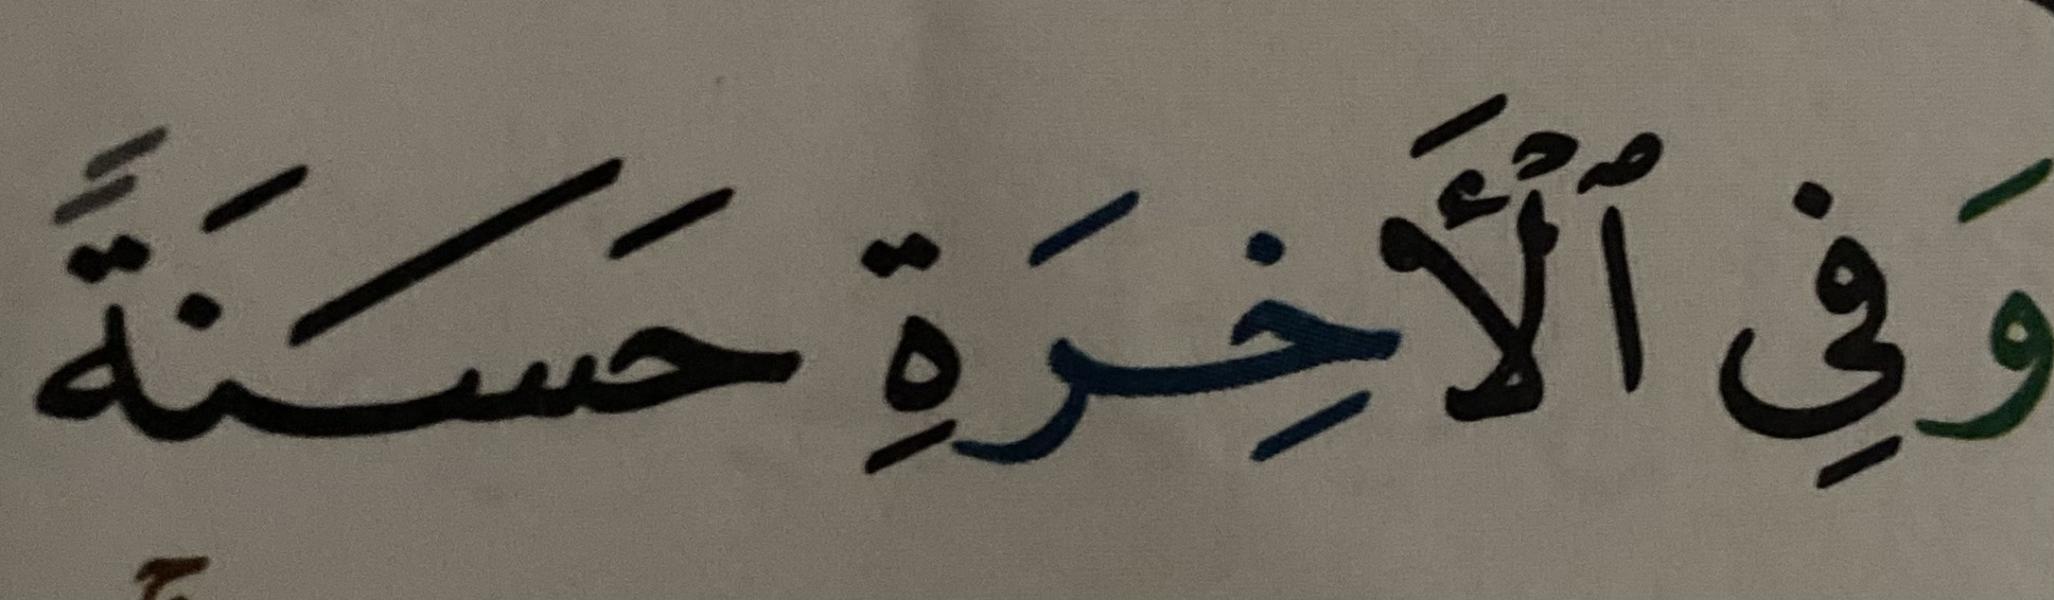 وَفِي ٱلْأَخِرَةِ حَسَنَةً